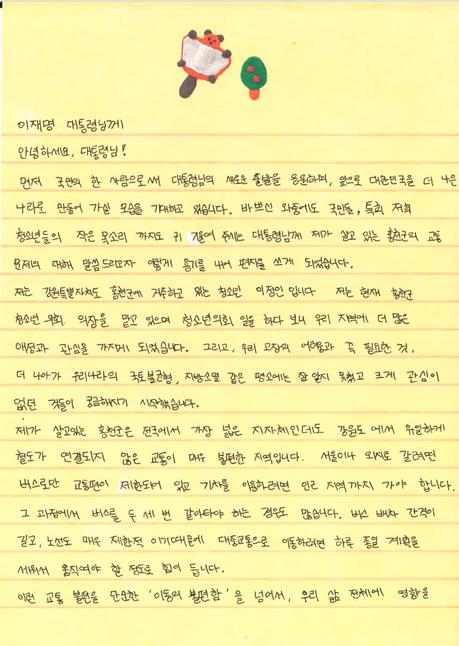 이재명 대통령님께
안녕하세요, 대통령님!
먼저 국민의 한 사람으로써 대통령님의 새로운 출발을 응원하며, 앞으로 대한민국을 더 나은
나라로 만들어 가실 모습을 기대하고 있습니다. 바쁘신 와중에도 국민들, 특히 저희
청소년들의 작은 목소리 까지도 귀 기울여 주시는 대통령님께 제가 살고 있는 홍천군의 교통
문제의 대해 말씀드리고자 이렇게 용기를 내어 편지를 쓰게 되었습니다.
저는 강원특별자치도 홍천군에 거주하고 있는 청소년 이정인입니다 저는 현재 홍천군
청소년 의회 의장을 맡고 있으며 청소년의회 일을 하다 보니 우리 지역에 더 많은
애정과 관심을 가지며 되었습니다. 그리고, 우리 고장의 어려움과 꼭 필요한 것,
더 나아가 우리나라의 국토불균형, 지방소멸 같은 평소에는 잘 알지 못했고 크게 관심이
없던 것들이 궁금해지기 시작했습니다.
제가 살고있는 홍천군은 전국에서 가장 넓은 지자체인데도 강원도에서 유일하게
철도가 연결되지 않은 교통이 매우 불편한 지역입니다. 서울이나 외지로 갈려면
버스로만 교통편이 제한되어 있고 기차를 이용하려면 인근 지역까지 가야 합니다.
그 과정에서 버스를 두 세 번 갈아타야 하는 경우도 많습니다. 버스 배차 간격이
길고, 노선도 매우 제한적 이기때문에 대중교통으로 이동하려면 하루 종일 계획을
세워서 움직여야 할 정도로 힘이 듭니다.
이런 교통 불편은 단순한 '이동의 불편함' 을 넘어서, 우리 삶 전체에 영향을